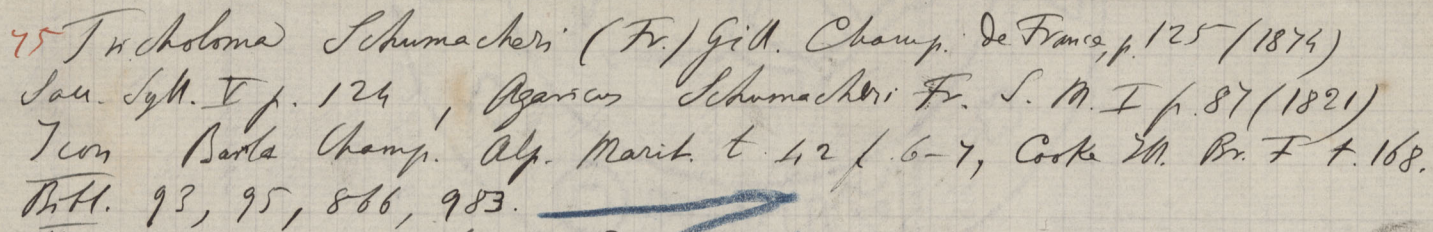 75 Tricholoma Schumacheri (Fr.) Gill. Champ. de France, p. 125 (1874)
Sacc. Syll. V p. 124, Agaricus Schumacheri Fr. S. M. I p. 87 (1821)
Icon Barla Champ. Alp. Marit. t. 42 f. 6-7, Cooke Ill. Br. F. t. 168.
Bibl. 93, 95, 866, 983.